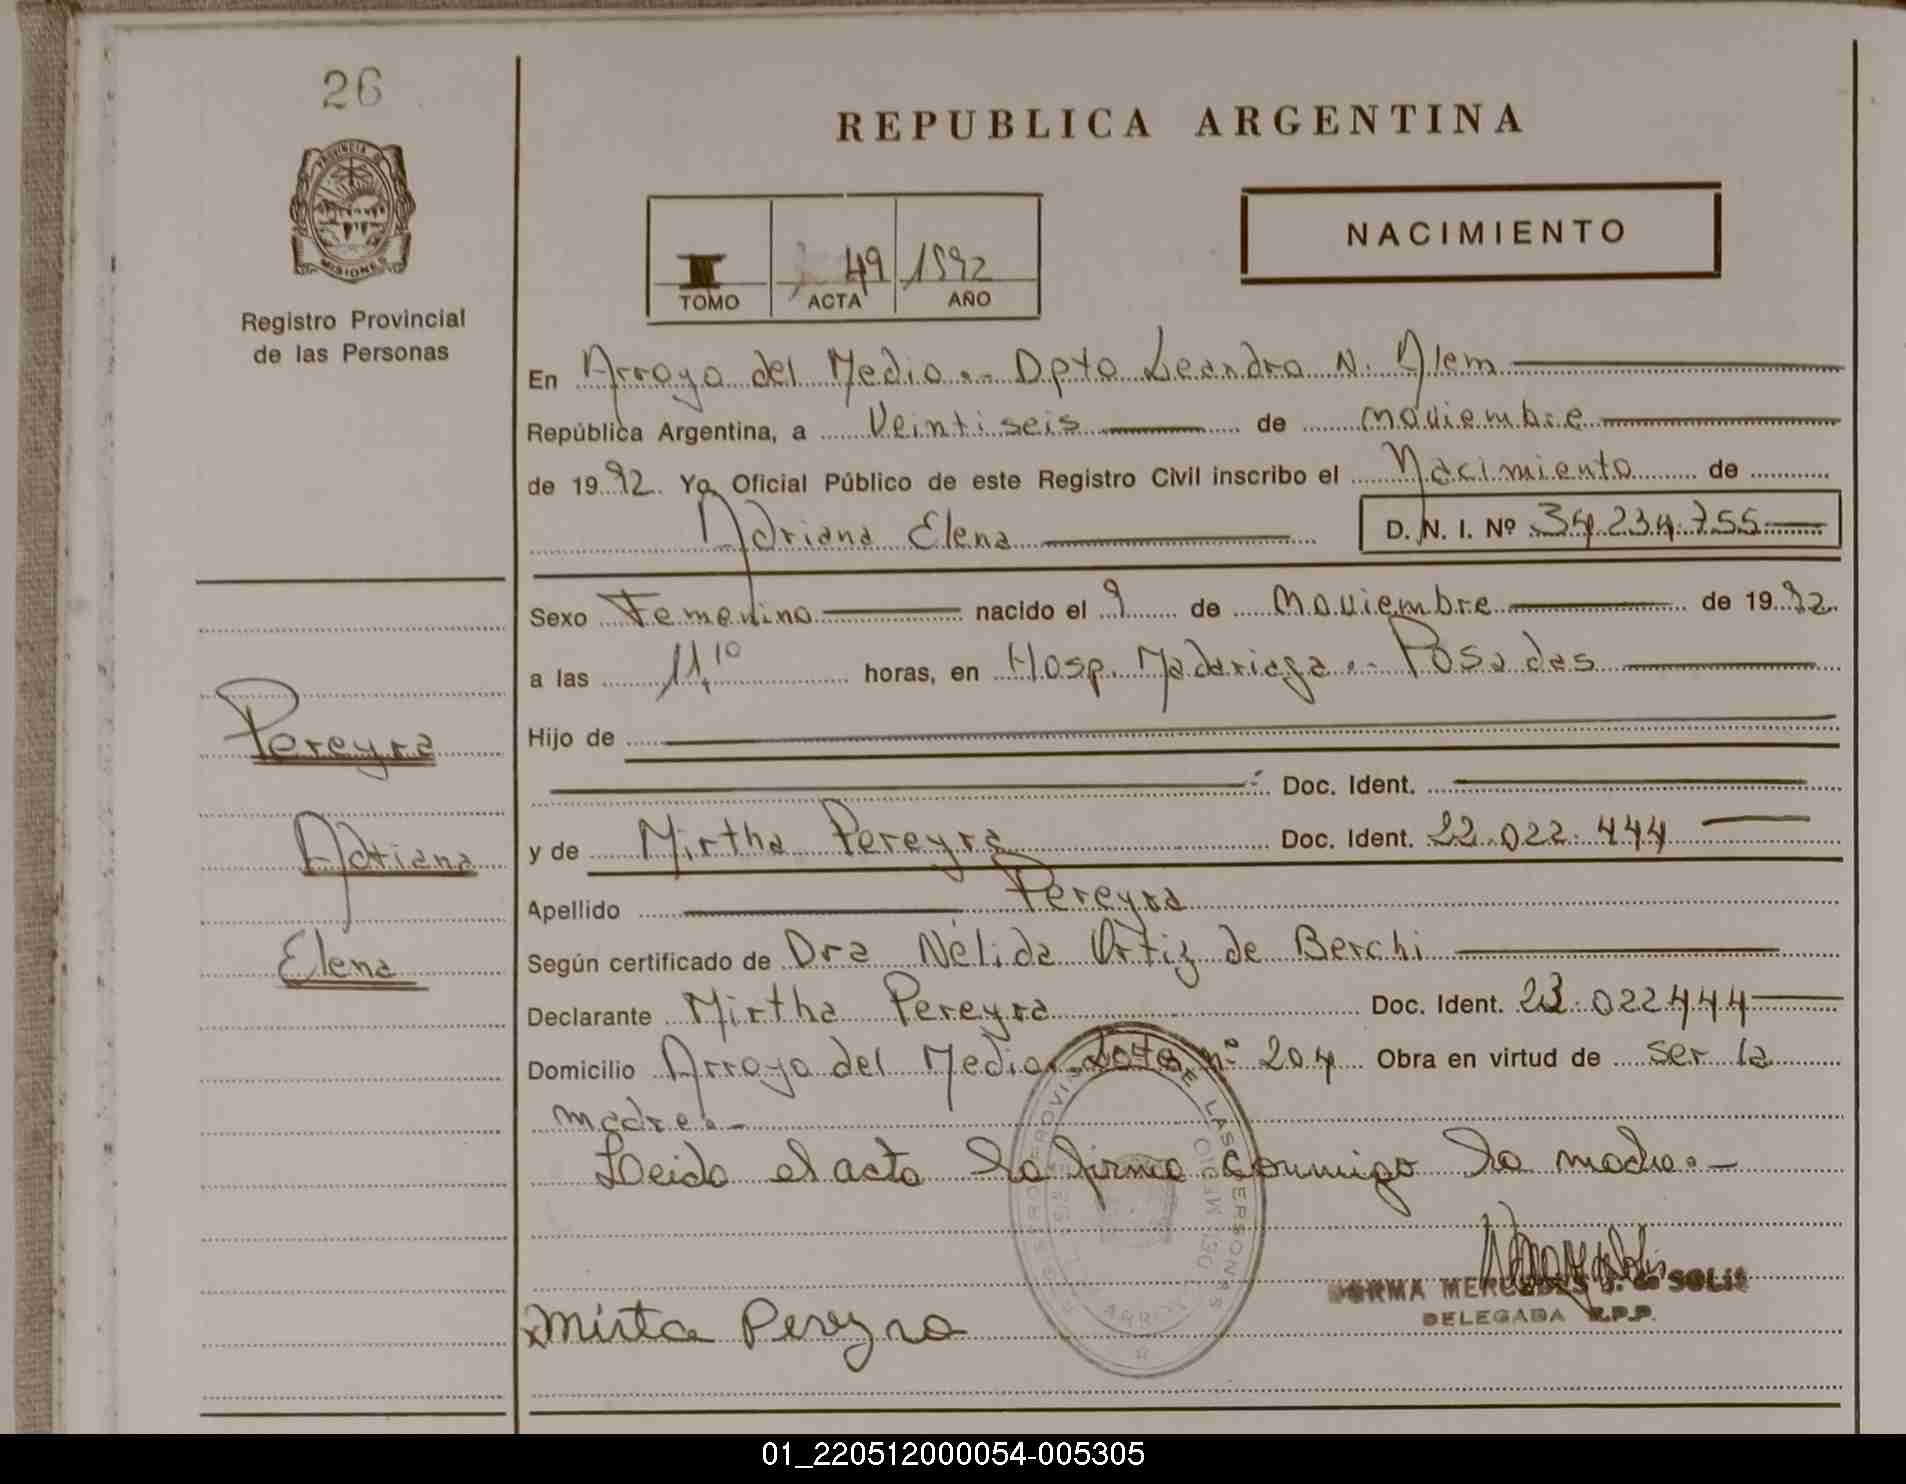 26
PROVINCIA DE
MISIONES
Registro Provincial
de las Personas
Pereyra
Adriana
Elena
REPUBLICA ARGENTINA
NACIMIENTO
49 1992
TOMO ACTA AÑO
En Arroyo del Medio.- Dpto Leandro N. Alem
República Argentina, a Veintiseis de noviembre
de 1992. Yo Oficial Público de este Registro Civil inscribo el Nacimiento de
Adriana Elena D. N. I. Nº 34.234.755
Sexo Femenino nacido el 9 de noviembre de 1992.
a las 11,10 horas, en Hosp. Madariaga.- Posadas
Hijo de
Doc. Ident.
y de Mirtha Pereyra Doc. Ident. 22.022.444
Apellido Pereyra
Según certificado de Dra Nélida Ortiz de Berchi
Declarante Mirtha Pereyra Doc. Ident. 022444
Domicilio Arroyo del Medio. Lote nº 204 Obra en virtud de ser la
madre.-
Leido el acta la firma conmigo la madre.-
DE LAS PERSONAS
DEL MEDIO
NORMA MERCEDES J. de SOLIS
DELEGADA R.P.P.
x Mirta Pereyra
01_220512000054-005305